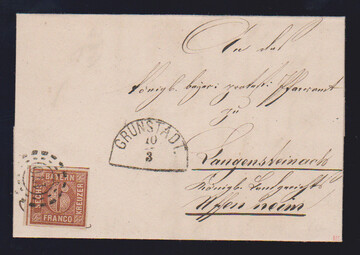 An das
Königl. bayer. protest. Pfarramt
zu
GRÜNSTADT
10
3
Langensteinach
Königl. Landgericht
Uffenheim
BAYERN
SECHS
KREUZER
6
FRANCO